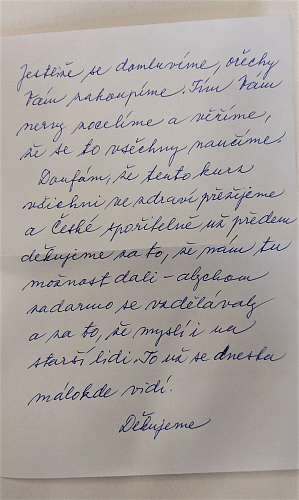 Jestliže se domluvíme, ořechy
Vám nakoupíme. Tím Vám
nervy zocelíme a věříme,
že se to všechny naučíme.
Doufám, že tento kurs
všichni ve zdraví přežijeme
a České spořitelně už předem
děkujeme za to, že nám tu
možnost dali - abychom
zadarmo se vzdělávaly
a za to, že myslí i na
starší lidi. To už se dneska
málokde vidí.
Děkujeme